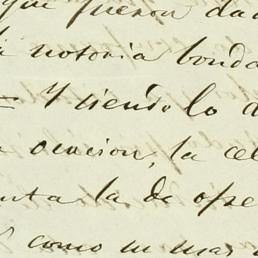 que fueron da
notoria bonda
Y siendo lo d
ocacion, la cel
nta la de ofre
como un mas